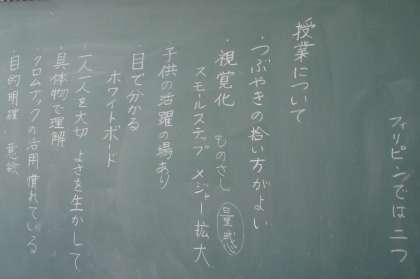 フィリピンでは二つ
授業について
・つぶやきの拾い方がよい
・視覚化 ものさし 量感
スモールステップ メジャー拡大
子供の活躍の場あり
・目で分かる
ホワイトボード
一人一人を大切 よさを生かして
・具体物で理解
クロムブックの活用 慣れている
・目的明確 意欲